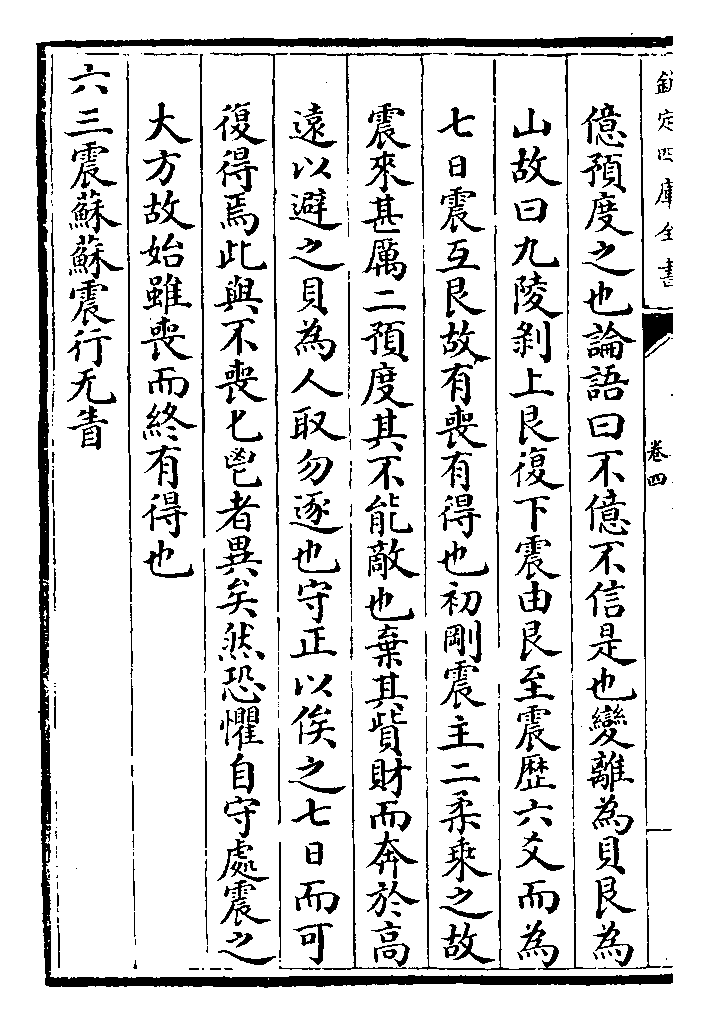 欽定四庫全書
卷四
億預度之也論語曰不億不信是也變離為貝艮為
山故曰九陵剥上艮復下震由艮至震歴六爻而為
七日震互艮故有喪有得也初剛震主二柔乗之故
震來甚厲二預度其不能敵也棄其貲財而奔於高
遠以避之貝為人取勿逐也守正以俟之七日而可
復得焉此與不喪匕鬯者異矣然恐懼自守處震之
大方故始雖喪而終有得也
六三震蘇蘇震行无眚